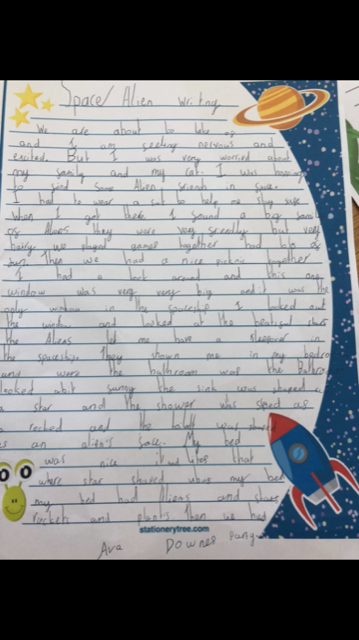 Space/ Alien writing
We are about to take of
and I am feeling nervous and
excited. But I was very worried about
my family and my cat. I was hopping
to find some Alien friends in space.
I had to wear a sut to help me stay safe
When I got there I found a big famil
of Aliens they were very friendly but very
hairy we played games together had lots of
fun. Then we had a nice picnic together
I had a look around and this one
window was very very big and it was the
only window in the spaceship I looked out
the window and looked at the beatiful stars
the Aliens let me have a sleepover in
the spaceship. They shown me in my bedro
and were the bathroom was the Bathroo
looked abit funny the sink was shaped a
a star and the shower was as
a rocked and the was shaped
as an alien's face. My bed
was nice it lites that
where star shaped above my bed
my bed had Aliens and stars
rockets and planets then we had
stationerytree.com
Ava Downes